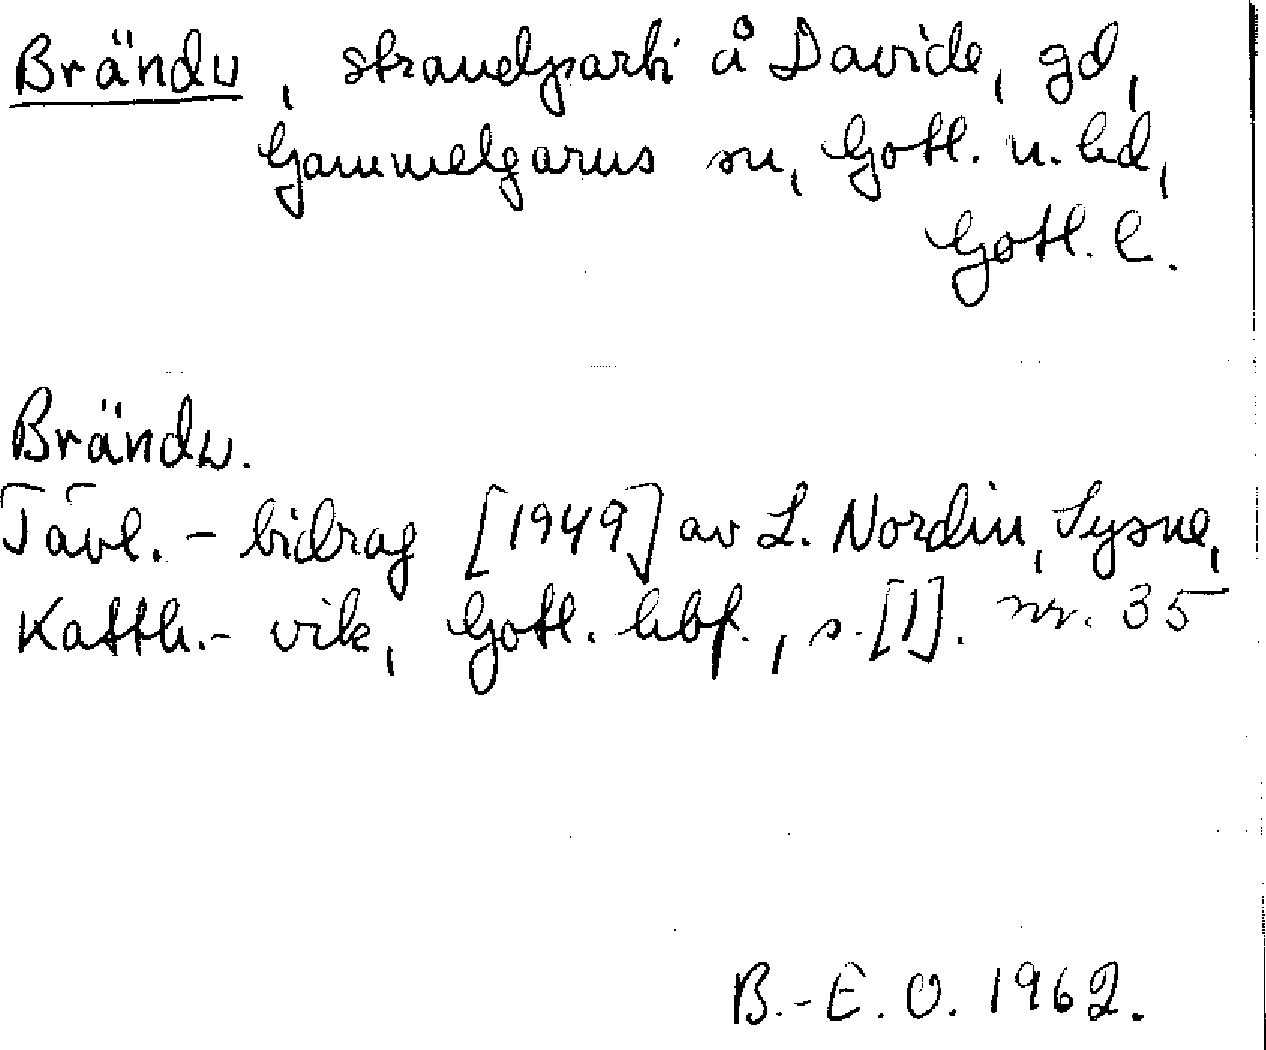 Brändu, strandparti å Davide, gd,
Gammelgarns sn, Gotl. n. hd,
Gotl. l.
Brändu.
Tävl.-bidrag [1949] av L. Nordin, Sysne,
Katth.-vik, Gotl. hbf., s. [1]. nr. 35
B.-E. O. 1962.